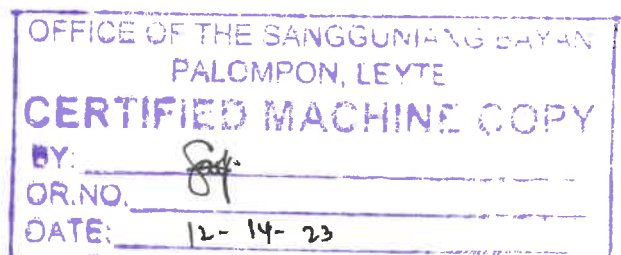 OFFICE OF THE SANGGUNIANG BAYAN
PALOMPON, LEYTE
CERTIFIED MACHINE COPY
BY:
OR.NO.
DATE: 12-14-23